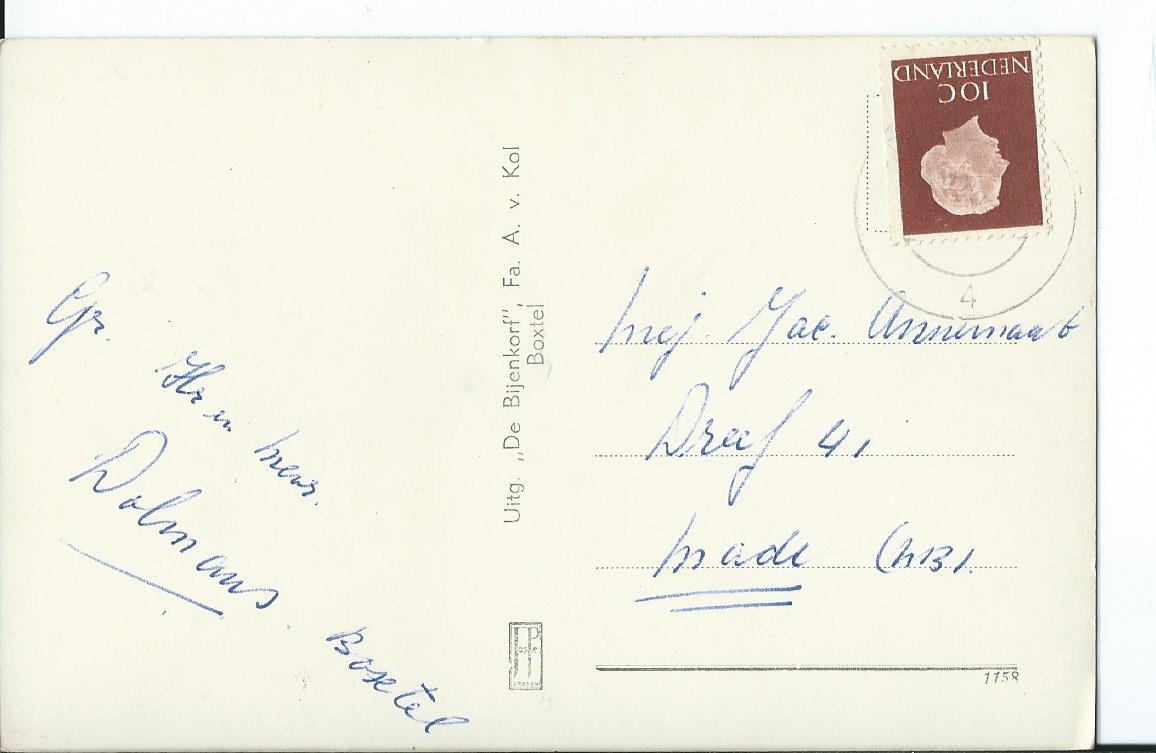 Gr.
Hr en Mevr.
Dolmans.
Boxtel
Uitg. „De Bijenkorf”, Fa. A. v. Kol
Boxtel
NEDERLAND
10 C
4
Mej. Jac. Annemaat
Dreef 41
Made (NB).
1158